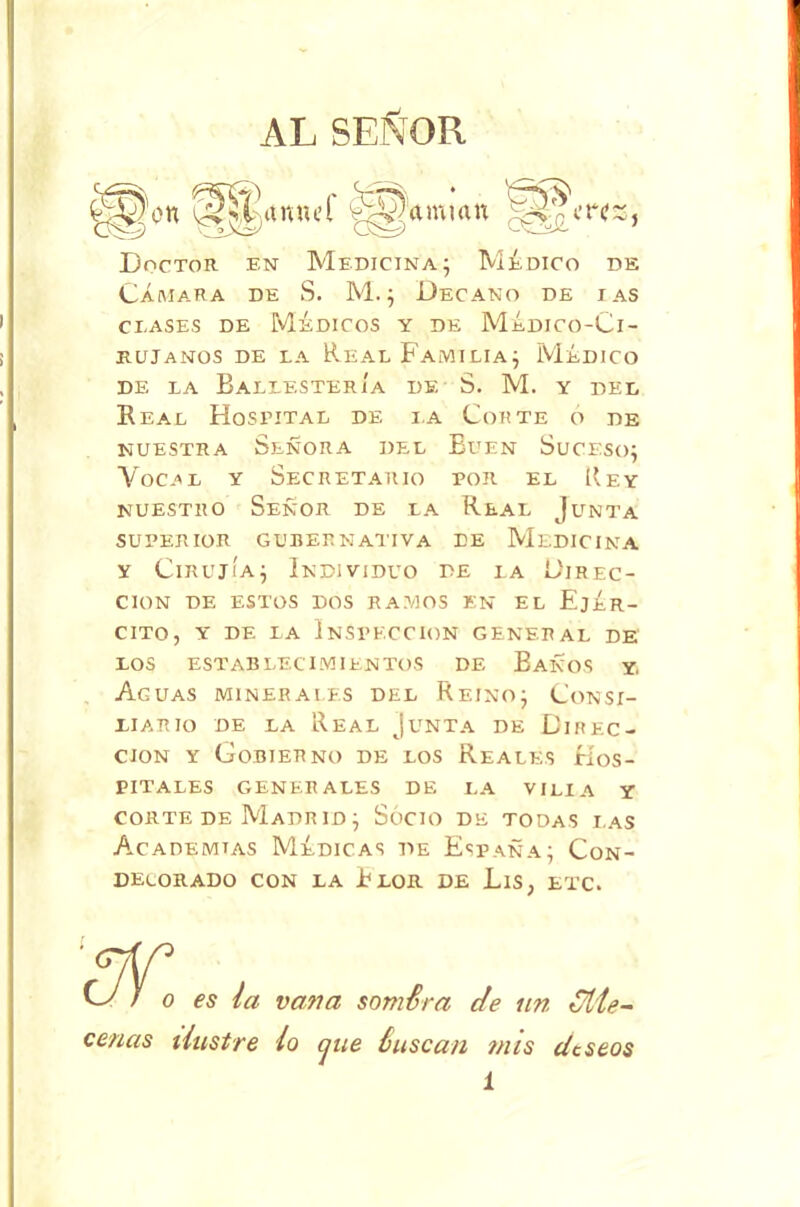 AL SEÑOR
Don Manuel Damian Perez,
Doctor en Medicina; Médico de
Cámara de S. M.; Decano de las
clases de Médicos y de Médico-Ci-
rujanos de la Real Familia; Médico
de la Ballestería de S. M. y del
Real Hospital de la Corte ó de
nuestra Señora del Buen Suceso;
Vocal y Secretario por el Rey
nuestro Señor de la Real Junta
superior gubernativa de Medicina
y Cirujía; Individuo de la Direc-
cion de estos dos ramos en el Ejér-
cito, y de la Inspeccion general de
los establecimientos de Baños y
Aguas minerales del Reino; Consi-
liario de la Real Junta de Direc-
cion y Gobierno de los Reales Hos-
pitales generales de la villa y
corte de Madrid; Sócio de todas las
Academias Médicas de España; Con-
decorado con la Flor de Lis, etc.
No es la vana sombra de un Me-
cenas ilustre lo que buscan mis deseos
1